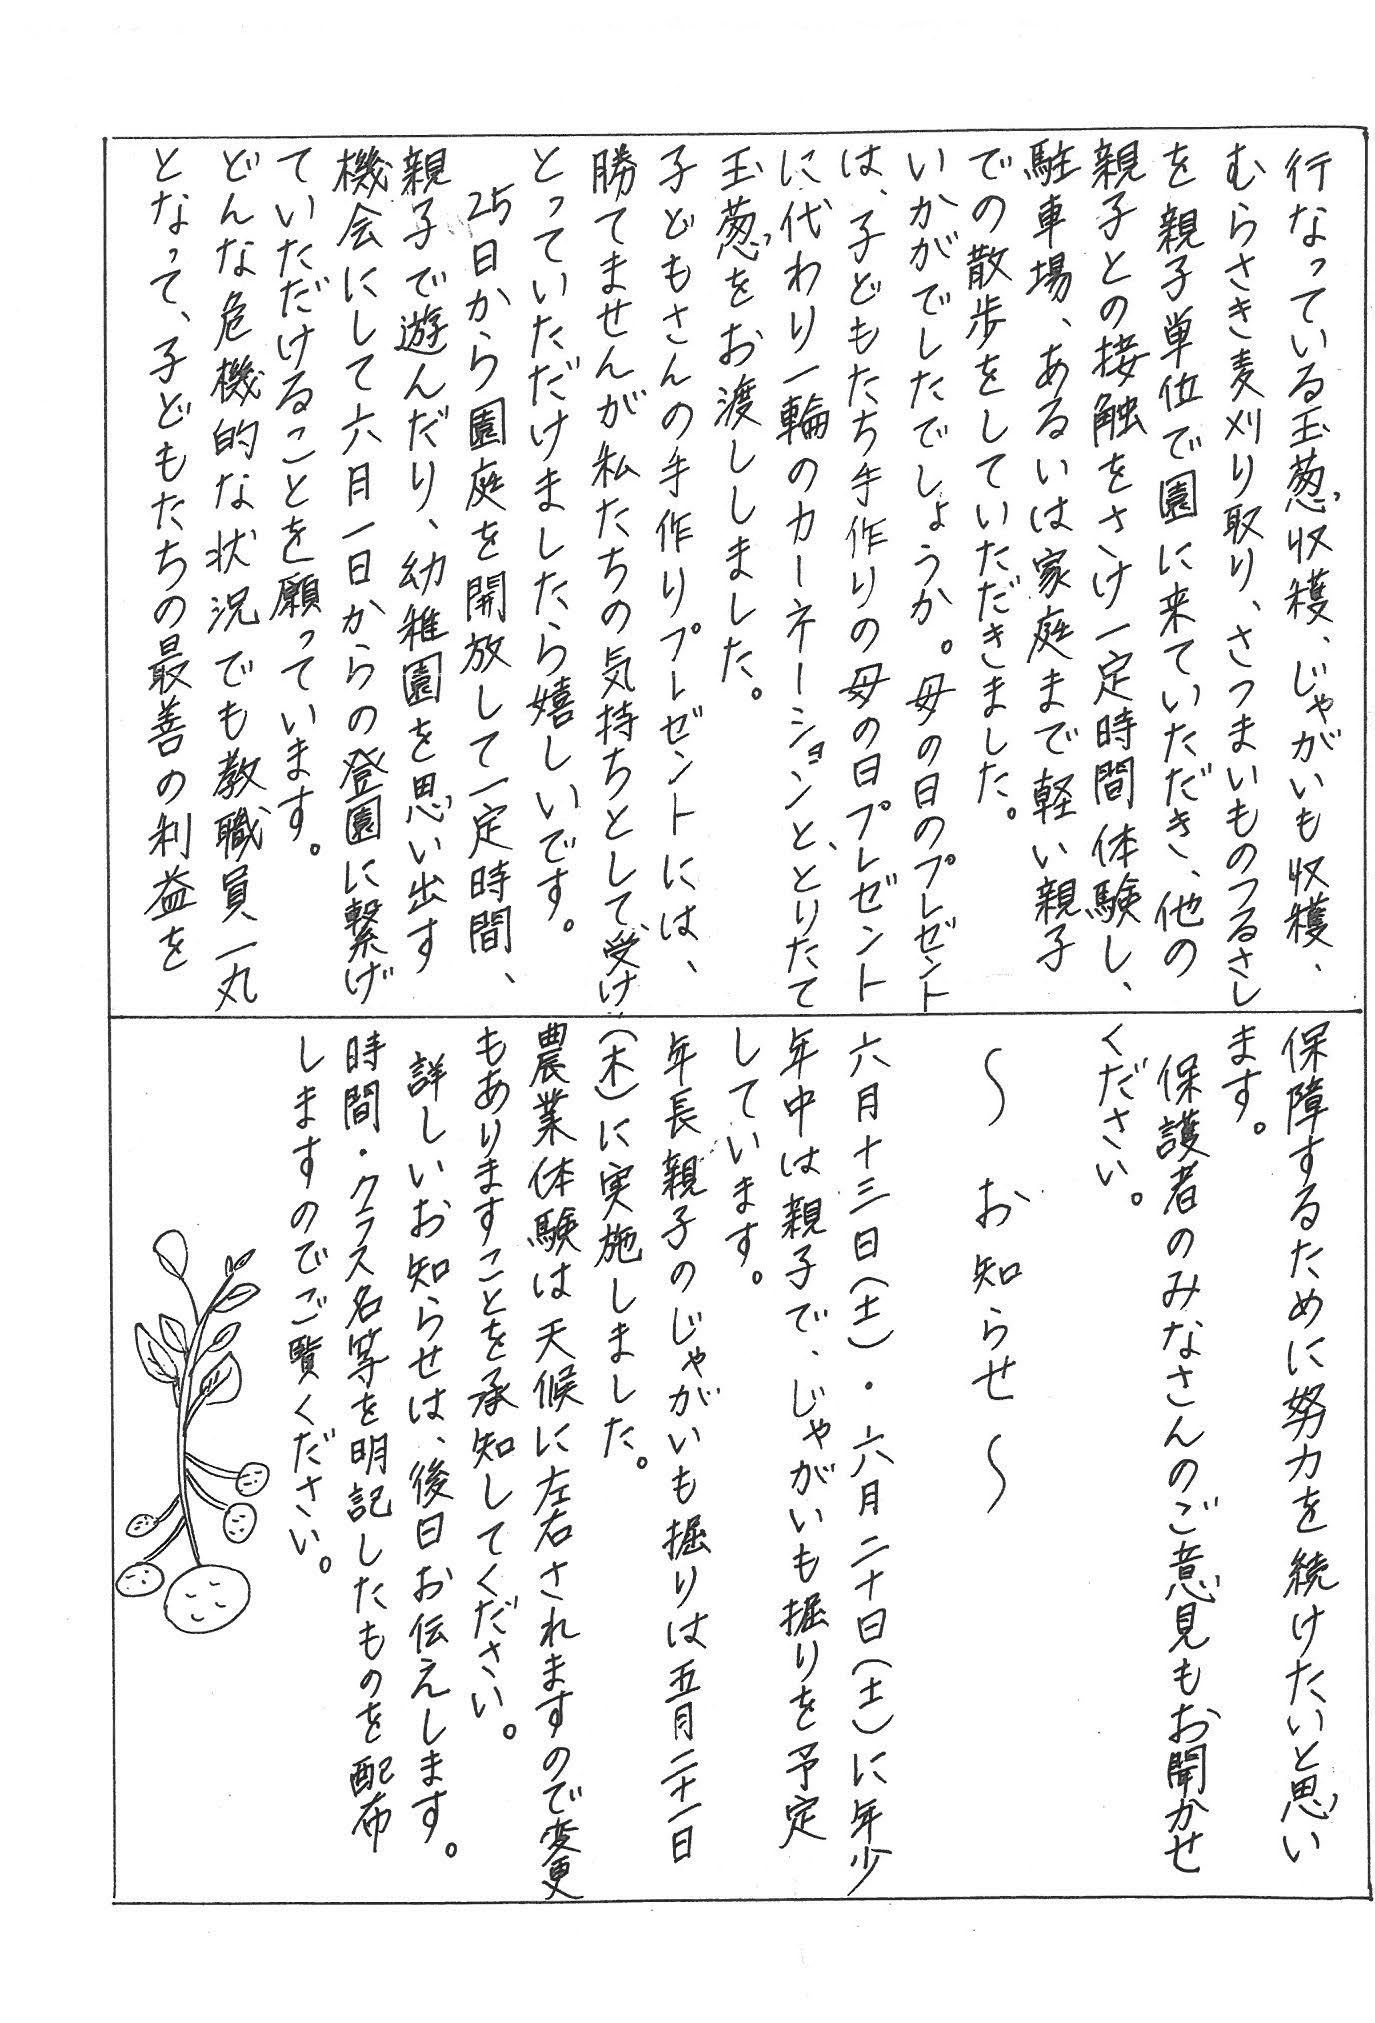 行なっている玉葱収穫、じゃがいも収穫、
むらさき麦刈り取り、さつまいものつるさし
を親子単位で園に来ていただき、他の
親子との接触をさけ一定時間体験し、
駐車場、あるいは家庭まで軽い親子
での散歩をしていただきました。
いかがでしたでしょうか。母の日のプレゼント
は、子どもたち手作りの母の日プレゼント
に代わり一輪のカーネーションと、とりたて
玉葱をお渡ししました。
子どもさんの手作りプレゼントには、
勝てませんが私たちの気持ちとして、受け
とっていただけましたら嬉しいです。
25日から園庭を開放して一定時間、
親子で遊んだり、幼稚園を思い出す
機会にして六月一日からの登園に繋げ
ていただけることを願っています。
どんな危機的な状況でも教職員一丸
となって、子どもたちの最善の利益を
保障するために努力を続けたいと思い
ます。
保護者のみなさんのご意見もお聞かせ
ください。
〜 お知らせ 〜
六月十三日(土)・六月二十日(土)に年少
年中は親子で、じゃがいも掘りを予定
しています。
年長親子のじゃがいも掘りは五月二十一日
(木)に実施しました。
農業体験は天候に左右されますので変更
もありますことを承知してください。
詳しいお知らせは、後日お伝えします。
時間・クラス名等を明記したものを配布
しますのでご覧ください。